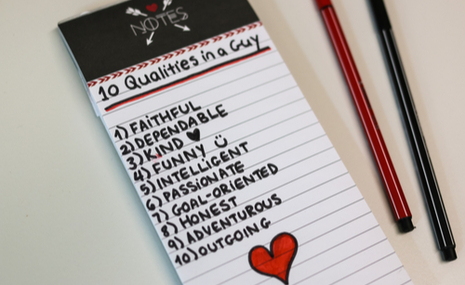 NOTES
10 Qualities in a Guy
1) FAITHFUL
2) DEPENDABLE
3) KIND
4) FUNNY
5) INTELLIGENT
6) PASSIONATE
7) GOAL-ORIENTED
8) HONEST
9) ADVENTUROUS
10) OUTGOING